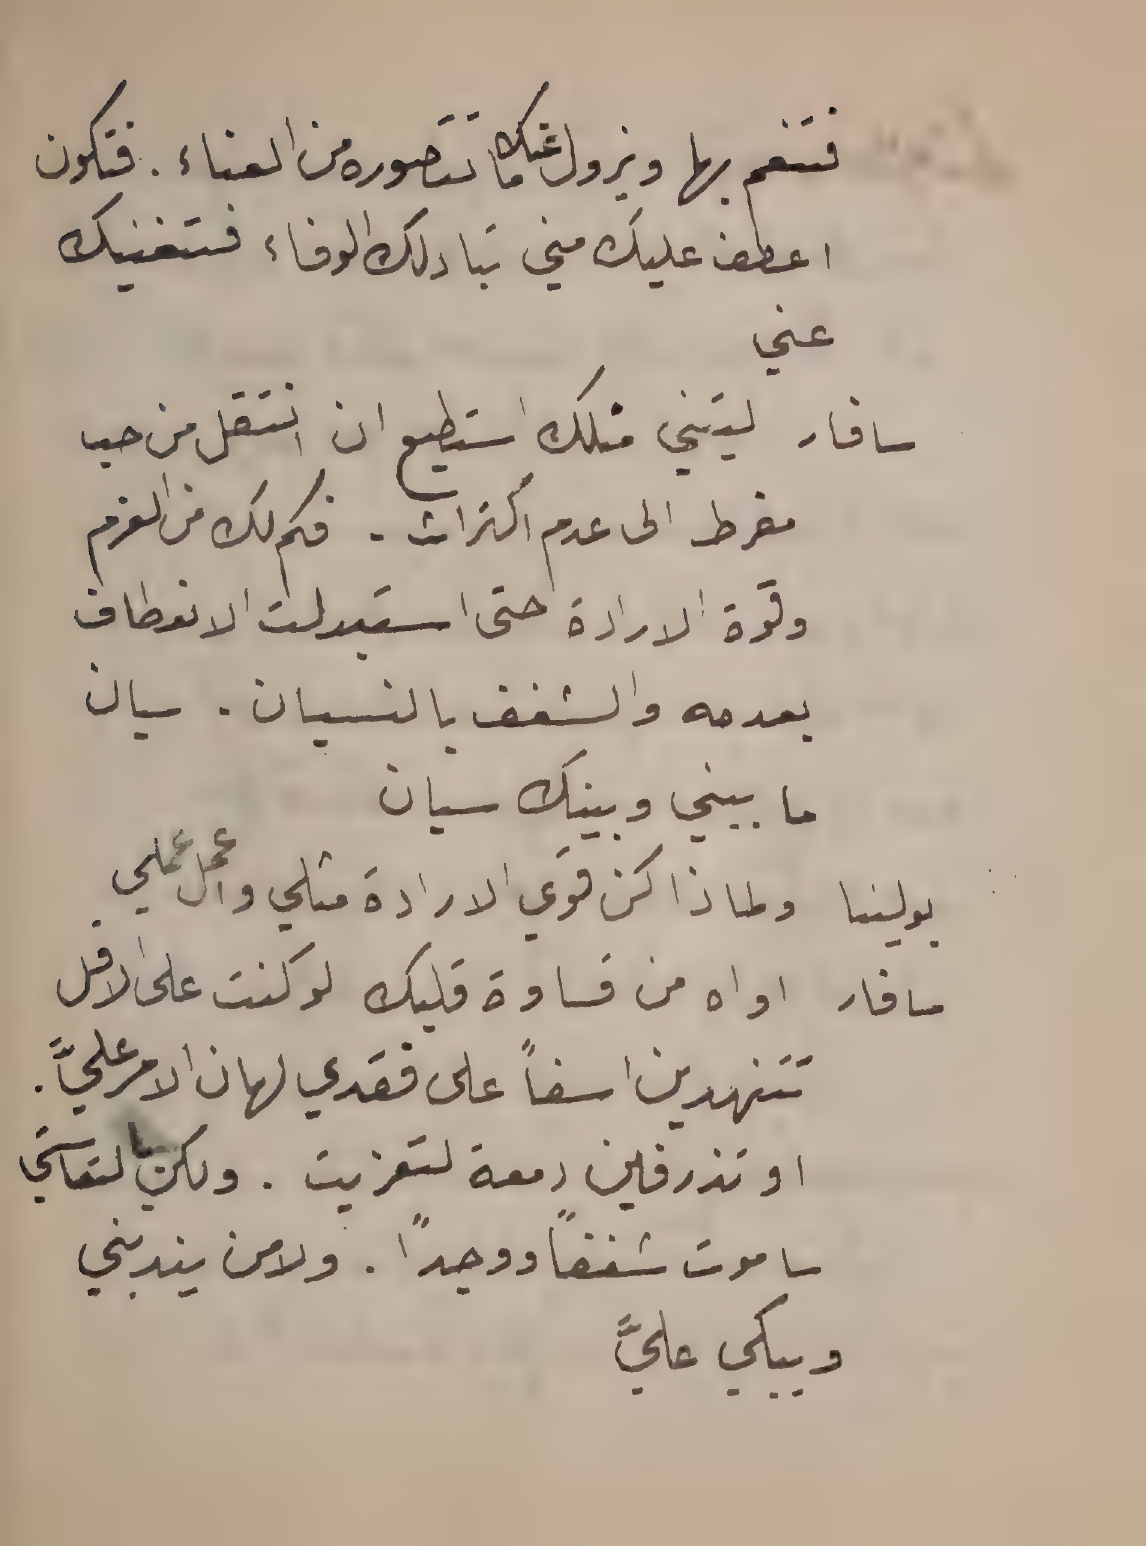 فتنعم بها ويزول عنك ما تتصوره من العناء . فتكون
اعطف عليك مني تبادلك الوفاء فتغنيك
عني
سافار ليتني مثلك استطيع ان انتقل من حب
مفرط الى عدم اكتراث . فكم لك من العزم
وقوة الارادة حتى استبدلت الانعطاف
بعدمه والشغف بالنسيان . سيان
ما بيني وبينك سيان
بولينا ولماذا كن قوي الارادة مثلي واعمل عملي .
سافار اواه من قساوة قلبك لو كنت على الاقل
تتنهدين اسفاً على فقدي لهان الامر عليَّ .
او تذرفين دمعة لتعزيت . ولكن يا لتعاستي
ساموت شغفاً ووحيداً . ولا من يندبني
ويبكي عليَّ